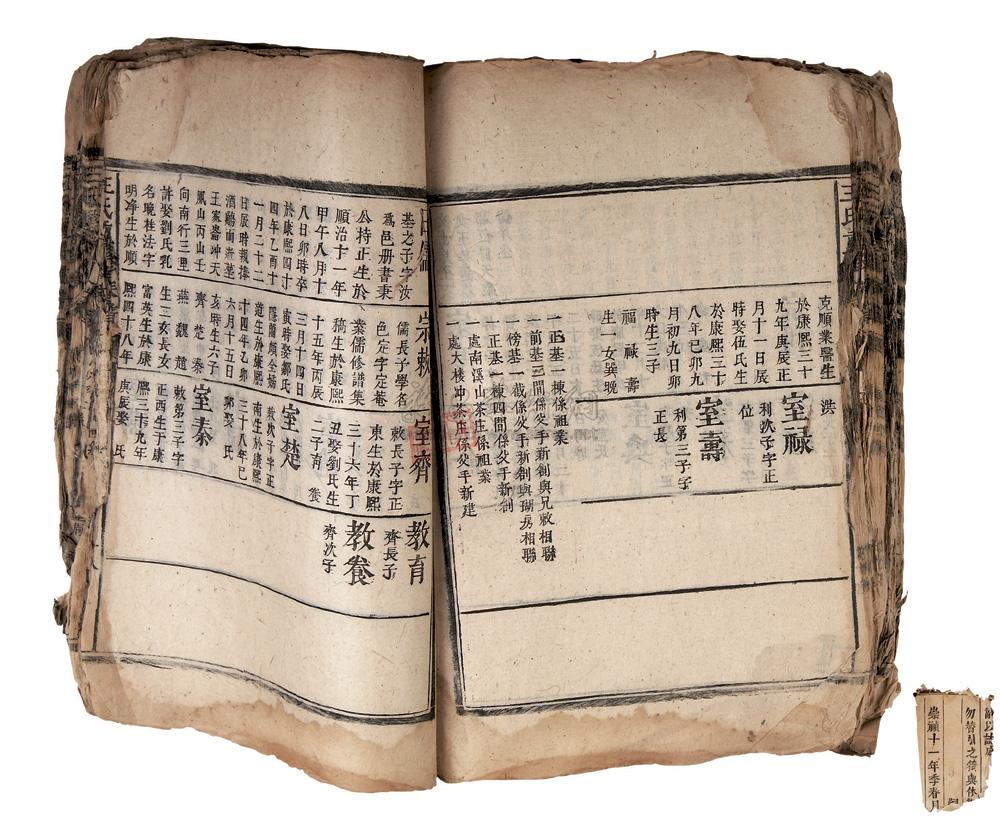 王氏
克順業醫生
於康熙三十
九年庚辰正
月十一日辰
時娶伍氏生
於康熙三十
八年已卯九
月初九日卯
時生三子
福祿壽
生一女巽晚
洪
室祿
利次子字正
位
室壽
利第三子字
正長
一正基一棟係祖業
一前基三間係父手新創與兄敕相聯
一傍基一截係父手新創與瑚房相聯
一正基一棟四間係父手新創
一處南溪山茶庄係祖業
一處大棧冲茶庄係父手新建
基之子字汝
爲邑册書秉
公持正生於
順治十一年
甲午八月十
八日卯時卒
於康熙四十
四年乙酉十
一月二十二
日辰時
王家
鳳山丙山壬
向南行三里
許娶劉氏乳
名晚桂法字
明净生於順
崇敕
儒長子學名
色定字定菴
業儒修譜集
稿生於康熙
十五年丙辰
三月十四日
寅時娶鄒氏
道生於康熙
十四年乙卯
六月十五日
亥時生六子
齊楚秦
燕魏趙
生二女長女
富英生於康
熙四十八年
室齊
敕長子字正
東生於康熙
三十六年丁
丑娶劉氏生
二子育養
室楚
敕次子字正
南生於康熙
三十八年已
卯娶氏
室秦
敕第三子字
正西生于康
熙三十九年
庚辰娶氏
教育
齊長子
教養
齊次子
王氏
勿替引之猗與休
崇禎十一年季春月